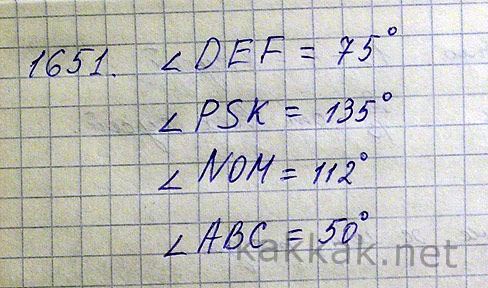 1651. ∠DEF = 75°
∠PSK = 135°
∠NOM = 112°
∠ABC = 50°
kakkak.net